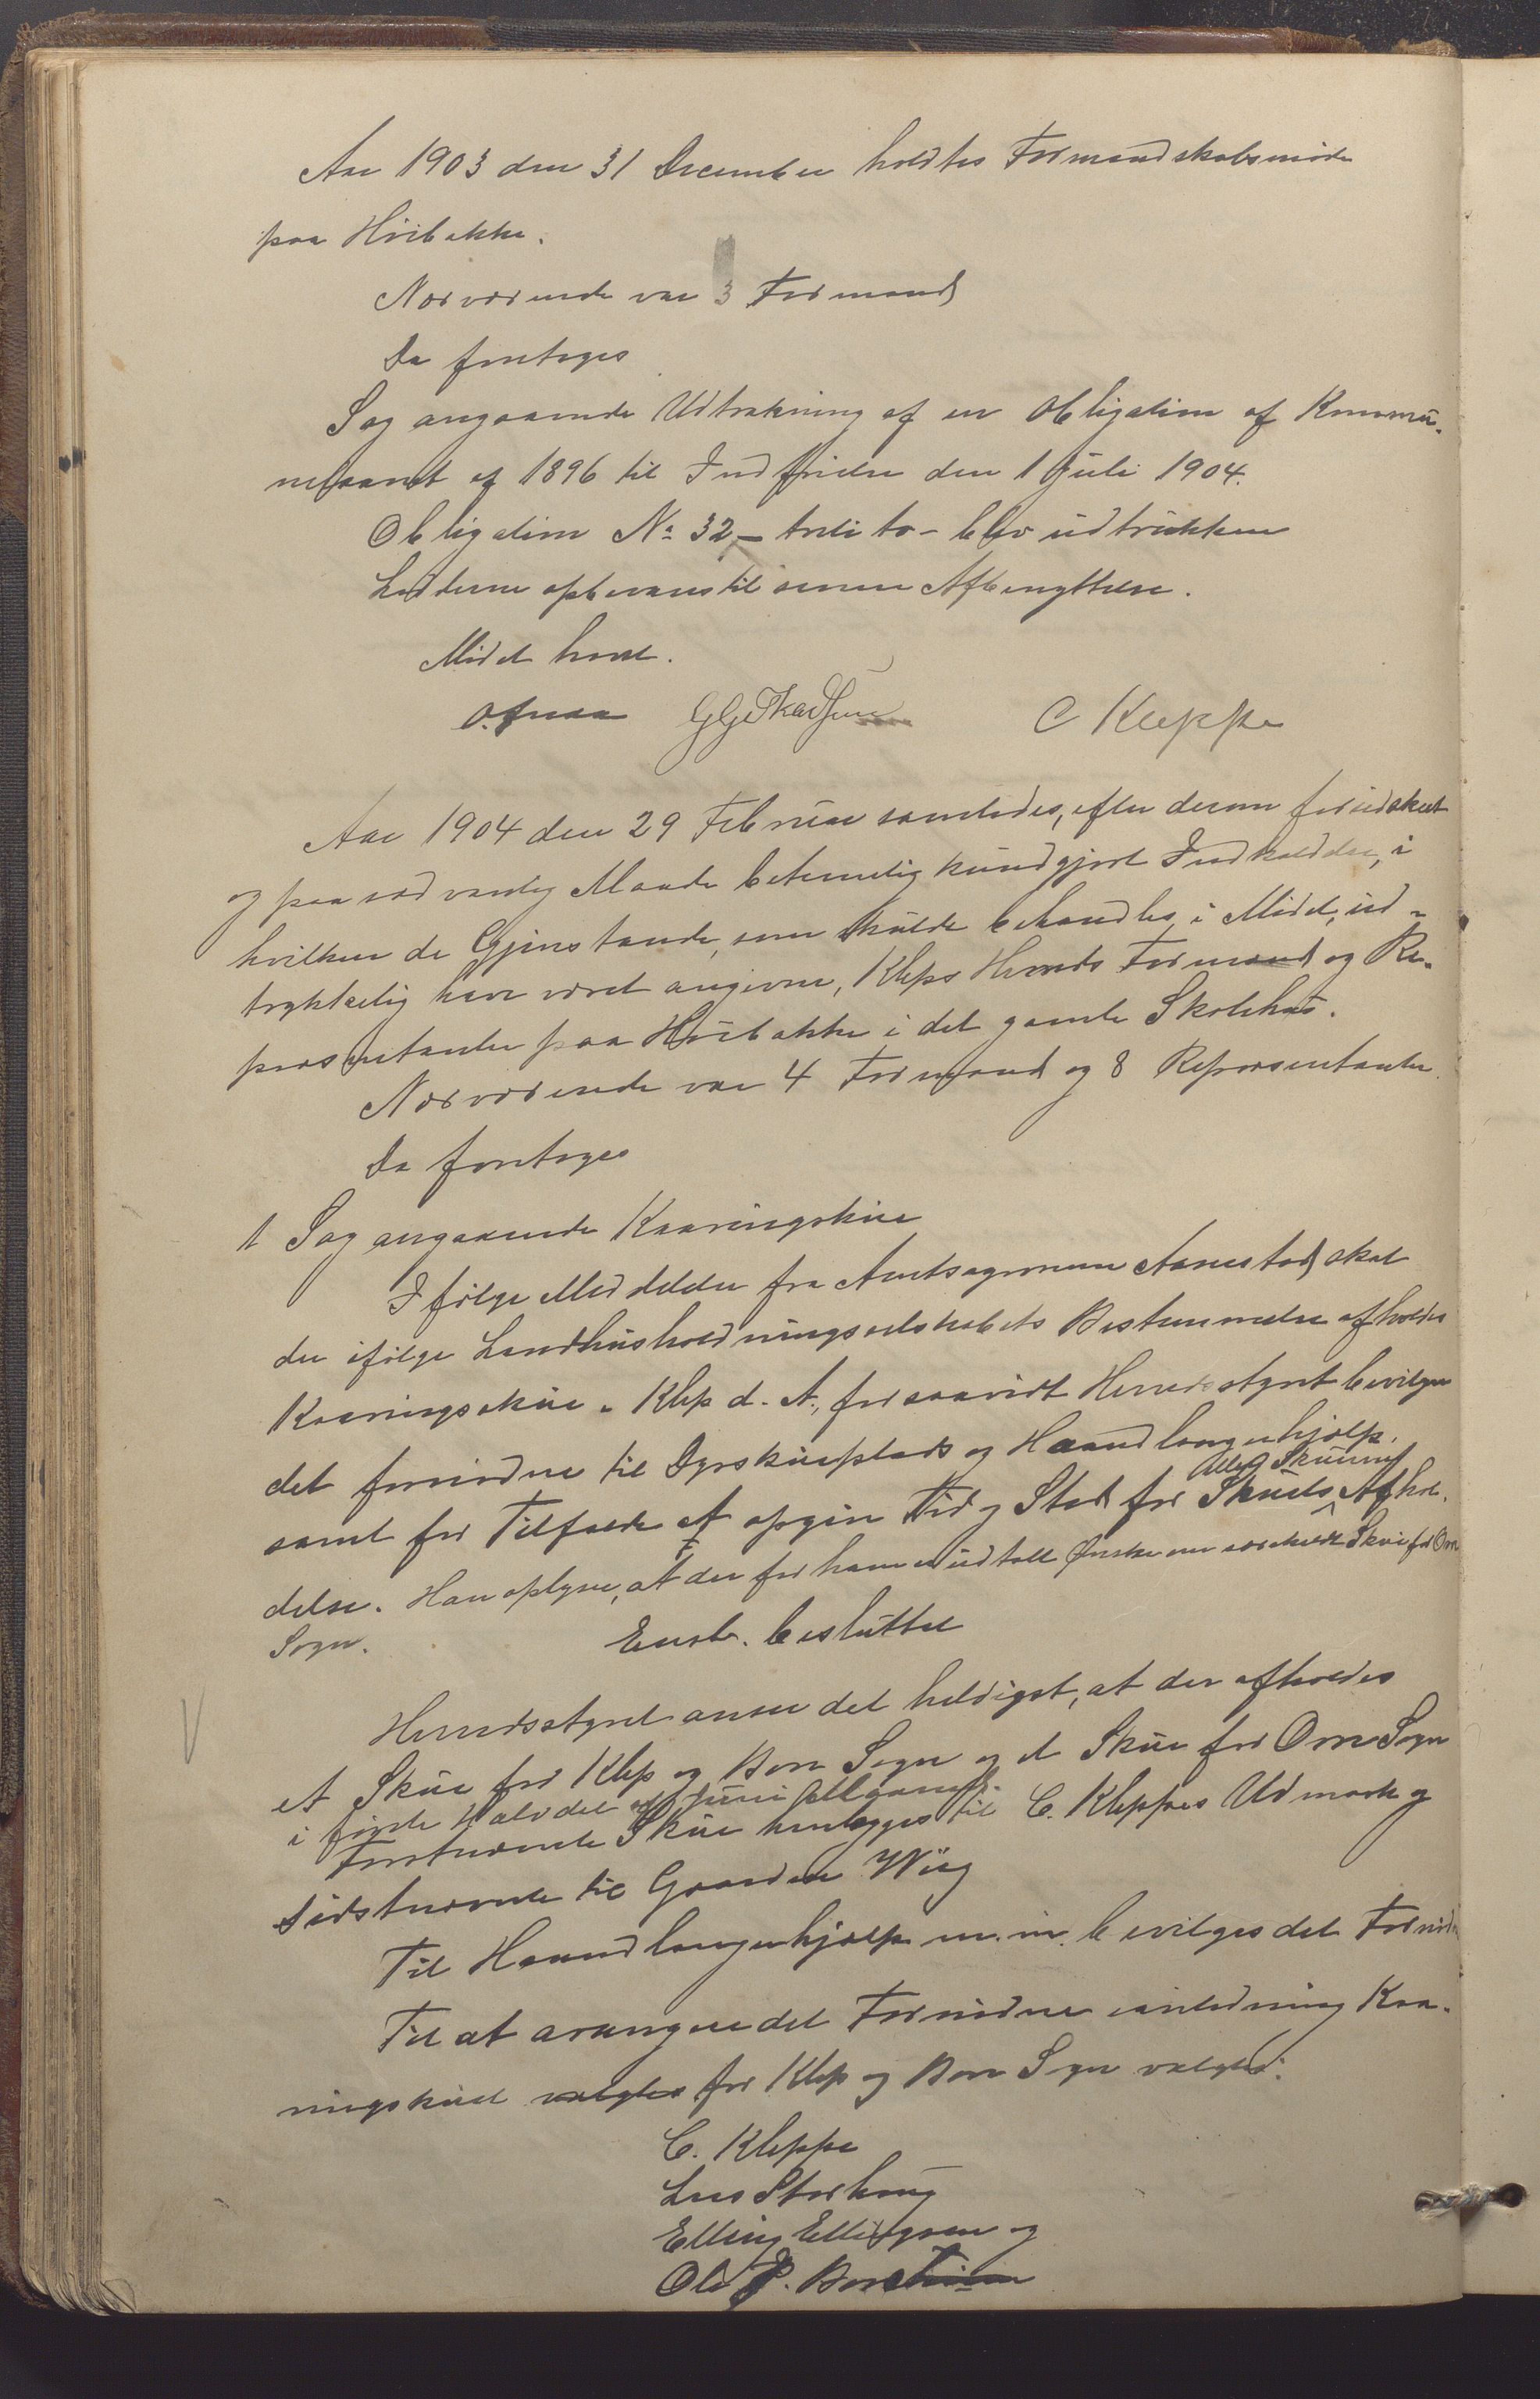 Aar 1903 den 31 December holdtes Formandskabsmöde
paa Höibakke.
Nærværende var 3 Formænd
Da foretoges
Sag angaaende Udtrækning af en Obligation af Kommu-
nelaanet af 1896 til Indfrielse den 1 Juli 1904.
Obligation No 32 – treti to – blev udtrukken
Lodderne opbevares til senere Afbenyttelse.
Mödet hævet.
C Kleppe
Aar 1904 den 29 Februar samledes, efter derom forudskeet
og paa sædvanlig Maade betimelig kundgjort Indkaldelse, i
hvilken de Gjenstande, som skulde behandles i Mödet, ud-
trykkelig have været angivne, Kleps Herreds Formænd og Re-
præsentanter paa Höibakke i det gamle Skolehus.
Nærværende var 4 Formænd og 8 Repræsentanter.
Da foretoges
1 Sag angaaende Kaaringsskue
Ifölge Meddelelse fra Amtsagronom Aanestad skal
der ifölge Landhusholdningsselskabets Bestemmelse afholdes
Kaaringsskue i Klep d. A., forsaavidt Herredsstyret bevilger
det fornödne til Dyrskueplads og Haandlangerhjælp,
samt for Tilfælde at opgive Tid og Sted for Skuets Afhol-
delse. Han oplyser, at der for ham er udtalt Önske om særskilt Skue for Orre
Sogn.
Enst. besluttet
Herredsstyret anser det heldigst, at der afholdes
et Skue for Klep og Bore Sogn og et Skue for Orre Sogn
i förste Halvdel af Juni
Förstnævnte Skue henlægges til C. Kleppes Udmark og
sidstnævnte til Gaarden Wiig
Til Haandlangerhjælp m.m. bevilges det Fornödne
Til at arangere det Fornödne i anledning Kaa-
ringsskuet valgtes for Klep og Bore Sogn valgtes:
C. Kleppe
Lars Storhaug
Elling Ellingsen og
Ole P. Bore